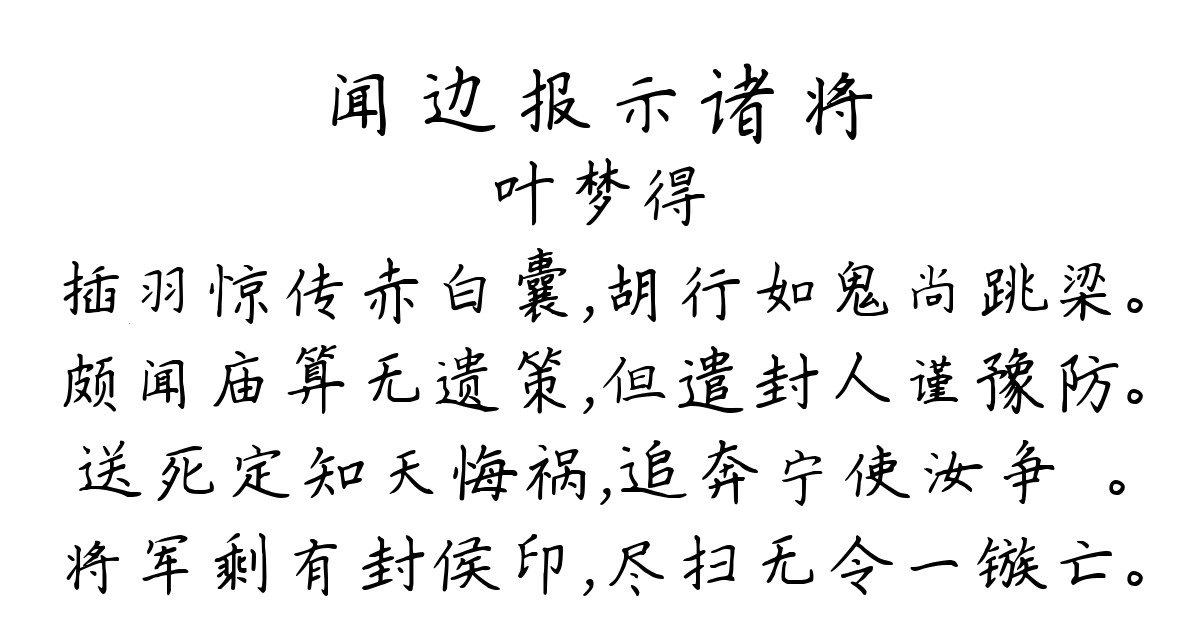 闻边报示诸将
叶梦得
插羽惊传赤白囊,胡行如鬼尚跳梁。
颇闻庙算无遗策,但遣封人谨豫防。
送死定知天悔祸,追奔宁使汝争 。
将军剩有封侯印,尽扫无令一镞亡。